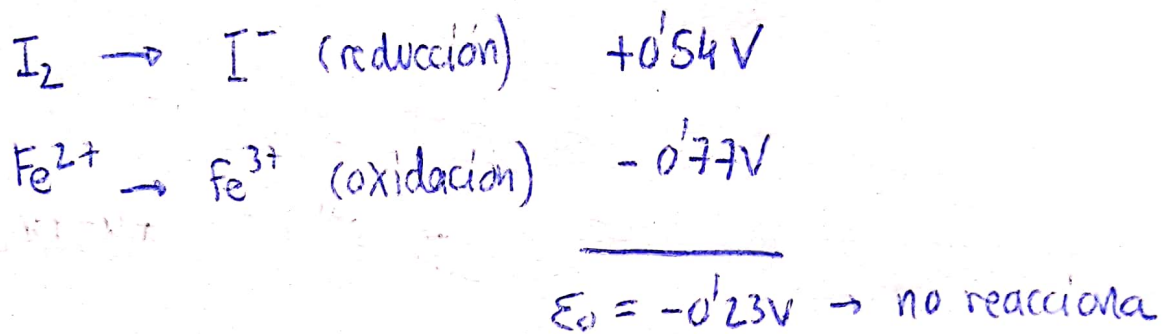 I₂ → I⁻ (reducción) +0'54 V
Fe²⁺ → Fe³⁺ (oxidación) -0'77V
ε₀ = -0'23V → no reacciona